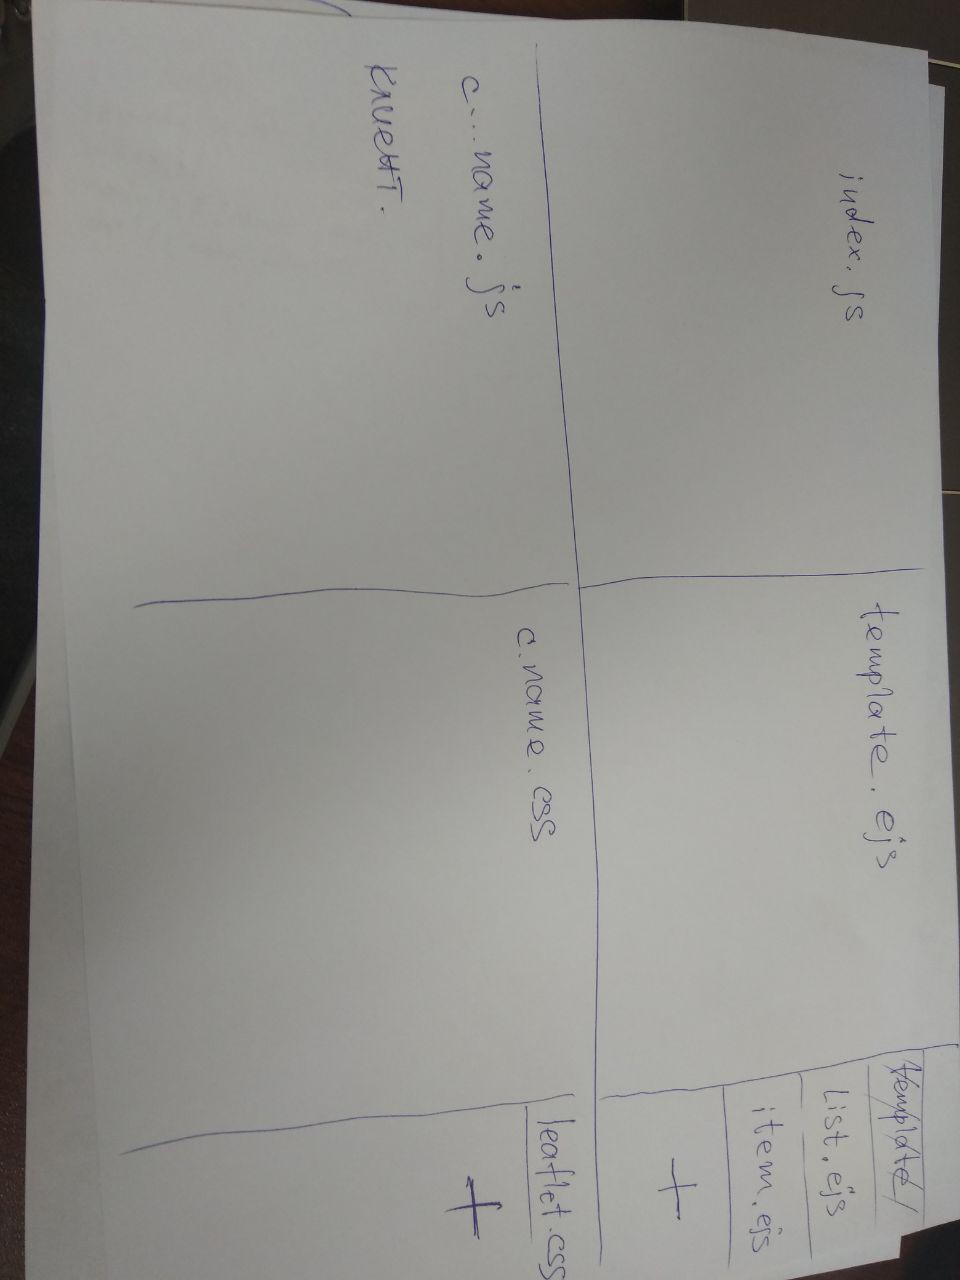 index.js
template.ejs
template/
list.ejs
item.ejs
+
c....name.js
клиент.
c.name.css
leaflet.css
+